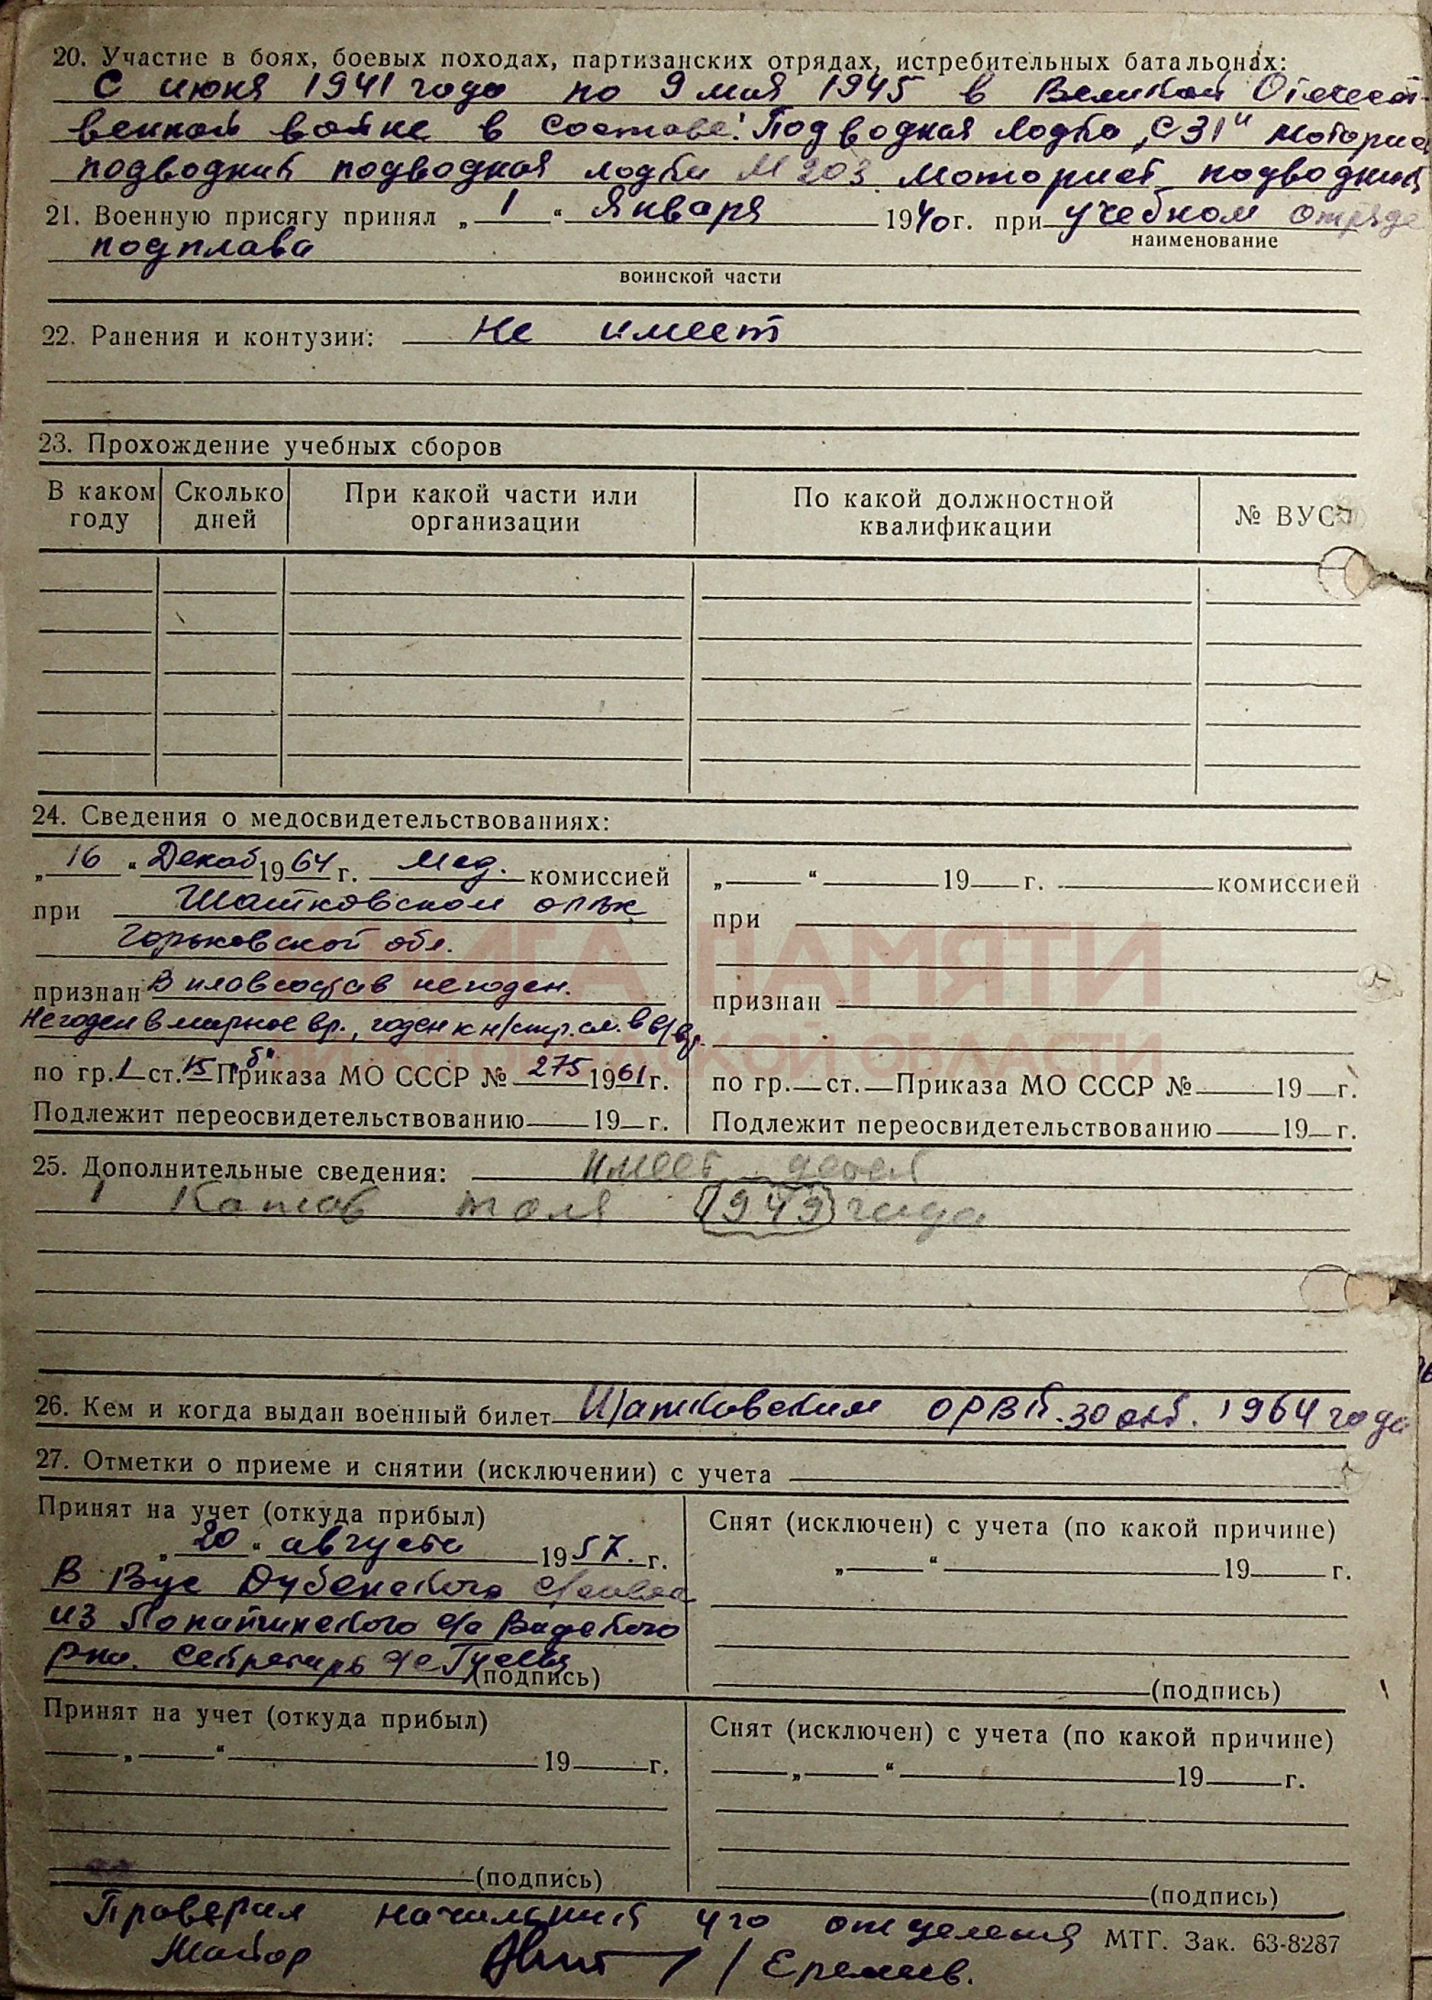 20. Участие в боях, боевых походах, партизанских отрядах, истребительных батальонах:
С июня 1941 года по 9 мая 1945 в Великой Отечест-
венной войне в составе: Подводная лодка „С 31" моторист
подводник подводная лодка М 203 моторист подводник
21. Военную присягу принял „ 1 " Января 1940 г. при учебном отряде
наименование
подплава
воинской части
22. Ранения и контузии: не имеет
23. Прохождение учебных сборов
В каком году
Сколько дней
При какой части или организации
По какой должностной квалификации
№ ВУС
24. Сведения о медосвидетельствованиях:
„ 16 " Декаб 1964 г. Мед. комиссией
при Шатковском
Горьковской обл.
признан В плавсостав негоден.
Негоден в мирное вр., годен к н/стр. сл. в в/вр.
по гр. 1 ст. 15 „б" Приказа МО СССР № 275 1961 г.
Подлежит переосвидетельствованию 19 г.
„ " 19 г. комиссией
при
признан
по гр. ст. Приказа МО СССР № 19 г.
Подлежит переосвидетельствованию 19 г.
КНИГА ПАМЯТИ
НИЖЕГОРОДСКОЙ ОБЛАСТИ
25. Дополнительные сведения: имеет детей
толя 1949 года
26. Кем и когда выдан военный билет Шатковским ОРВК. 30 окт. 1964 года
27. Отметки о приеме и снятии (исключении) с учета
Принят на учет (откуда прибыл)
„ 20 " августа 1957 г.
В Вус Дубенского
из Лопатинского с/с Вадского
рна. Секретарь с/с
(подпись)
Снят (исключен) с учета (по какой причине)
„ " 19 г.
(подпись)
Принят на учет (откуда прибыл)
„ " 19 г.
(подпись)
Снят (исключен) с учета (по какой причине)
„ " 19 г.
(подпись)
Проверил начальник 4го отделения
МТГ. Зак. 63-8287
Майор / Еремеев.